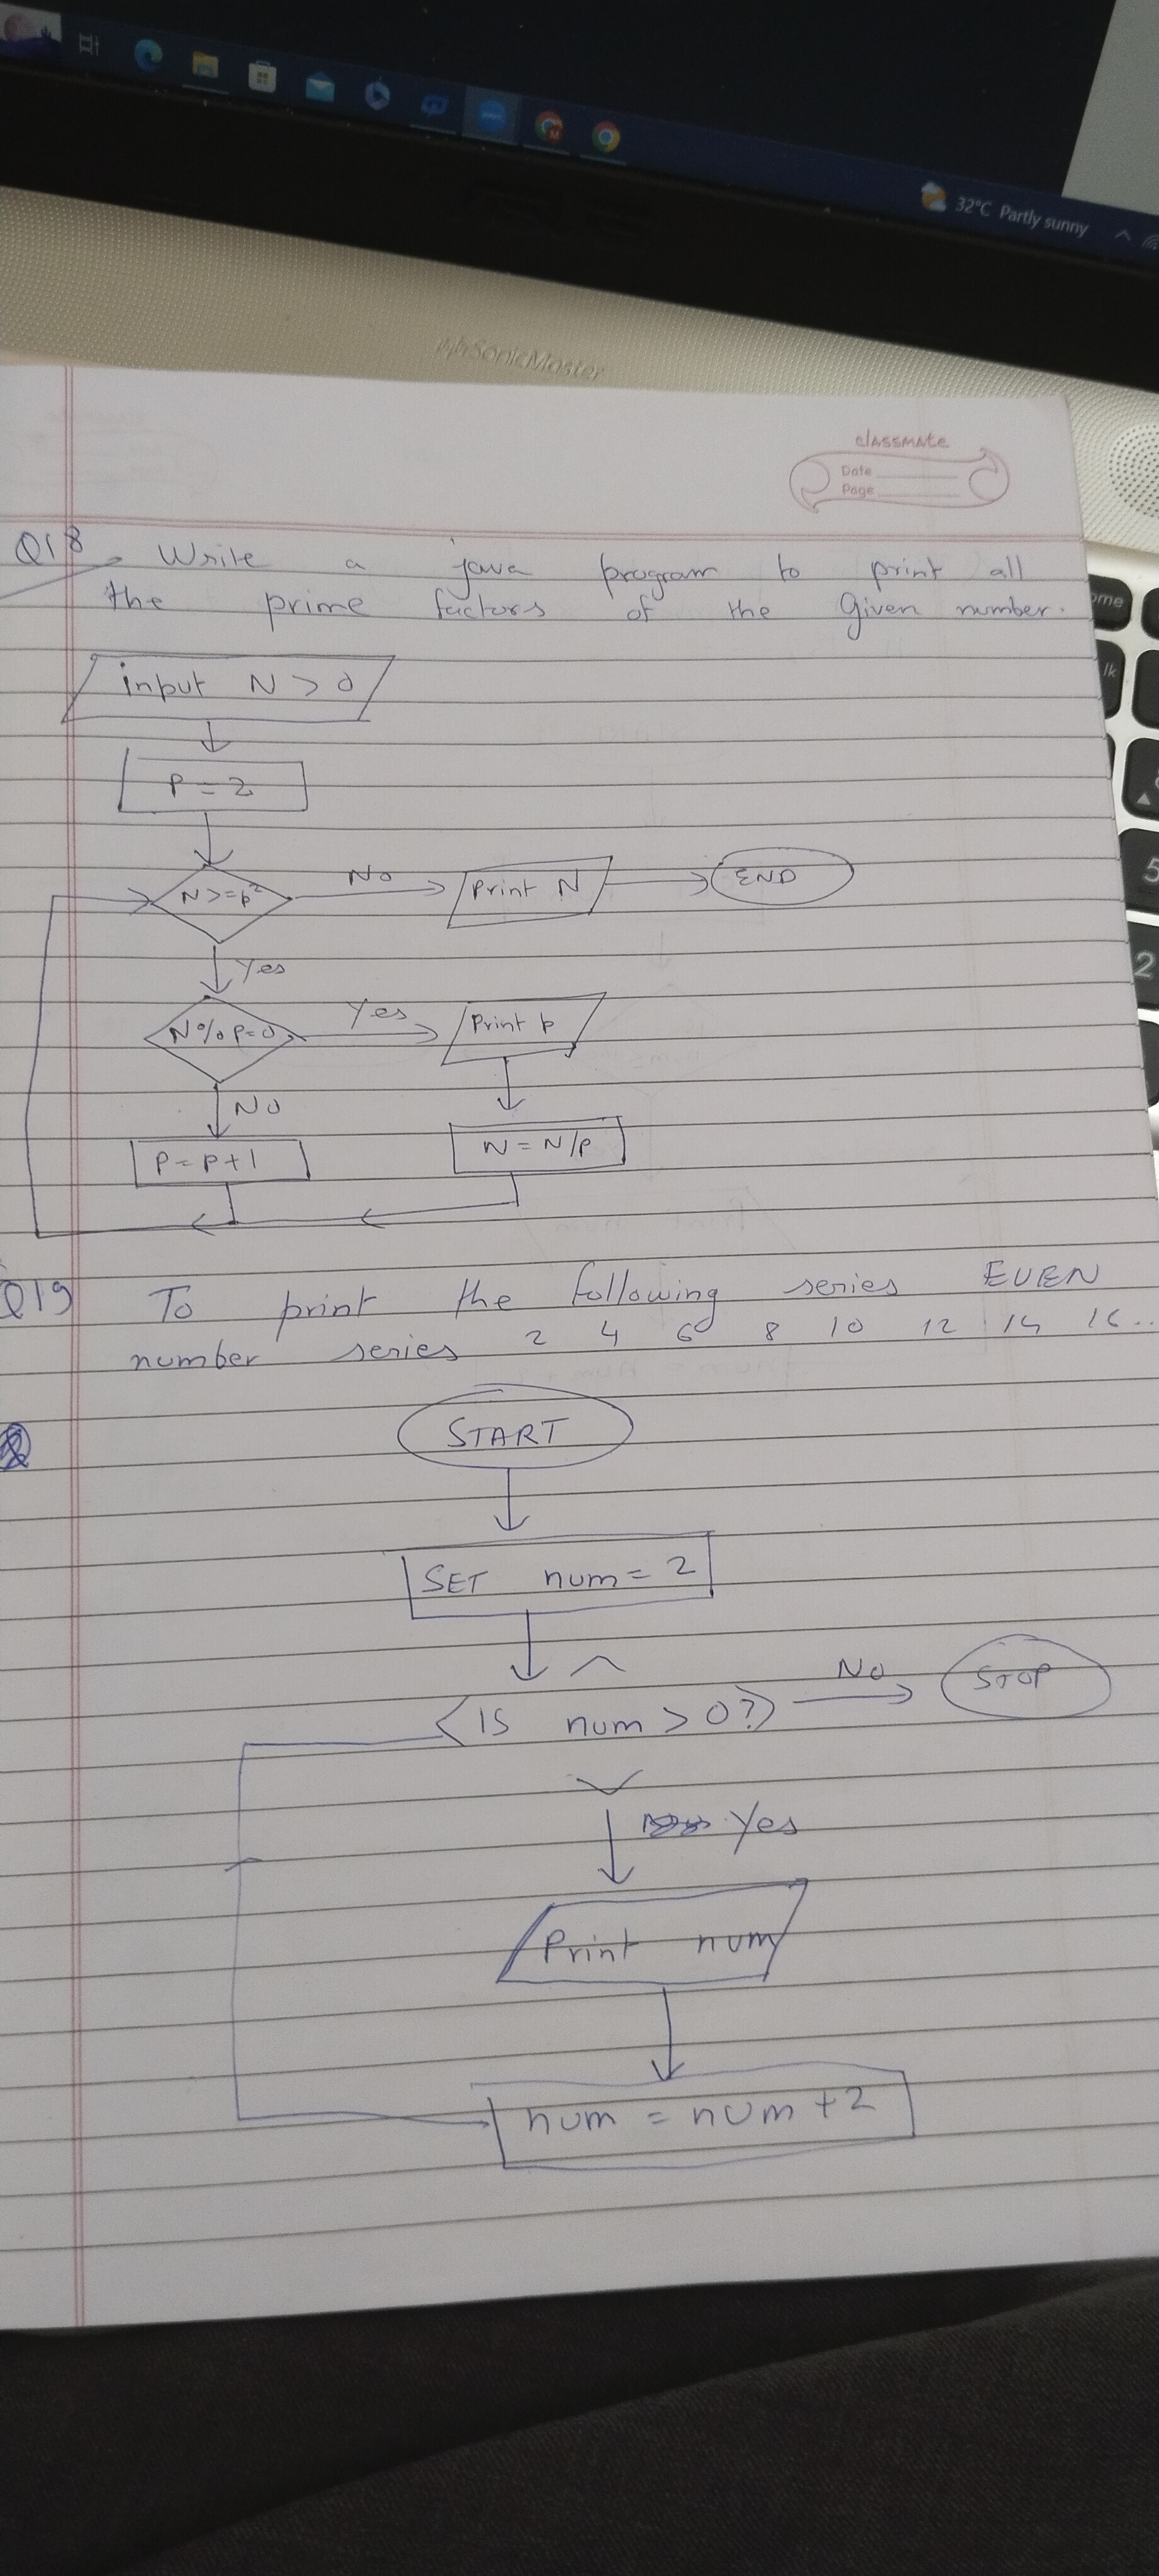 32°C Partly sunny
SonicMaster
classmate
Date
Page
Q18. Write a java program to print all
the prime factors of the Given number.
input N > 0
P = 2
N >= p²
No
Print N
END
Yes
N % P = 0
Yes
Print p
No
P = P + 1
N = N/P
Q19 To print the following series EVEN
number series 2 4 6 8 10 12 14 16..
START
SET num = 2
IS num > 0?
No
STOP
Yes
Print num
num = num + 2
ome
lk
5
2